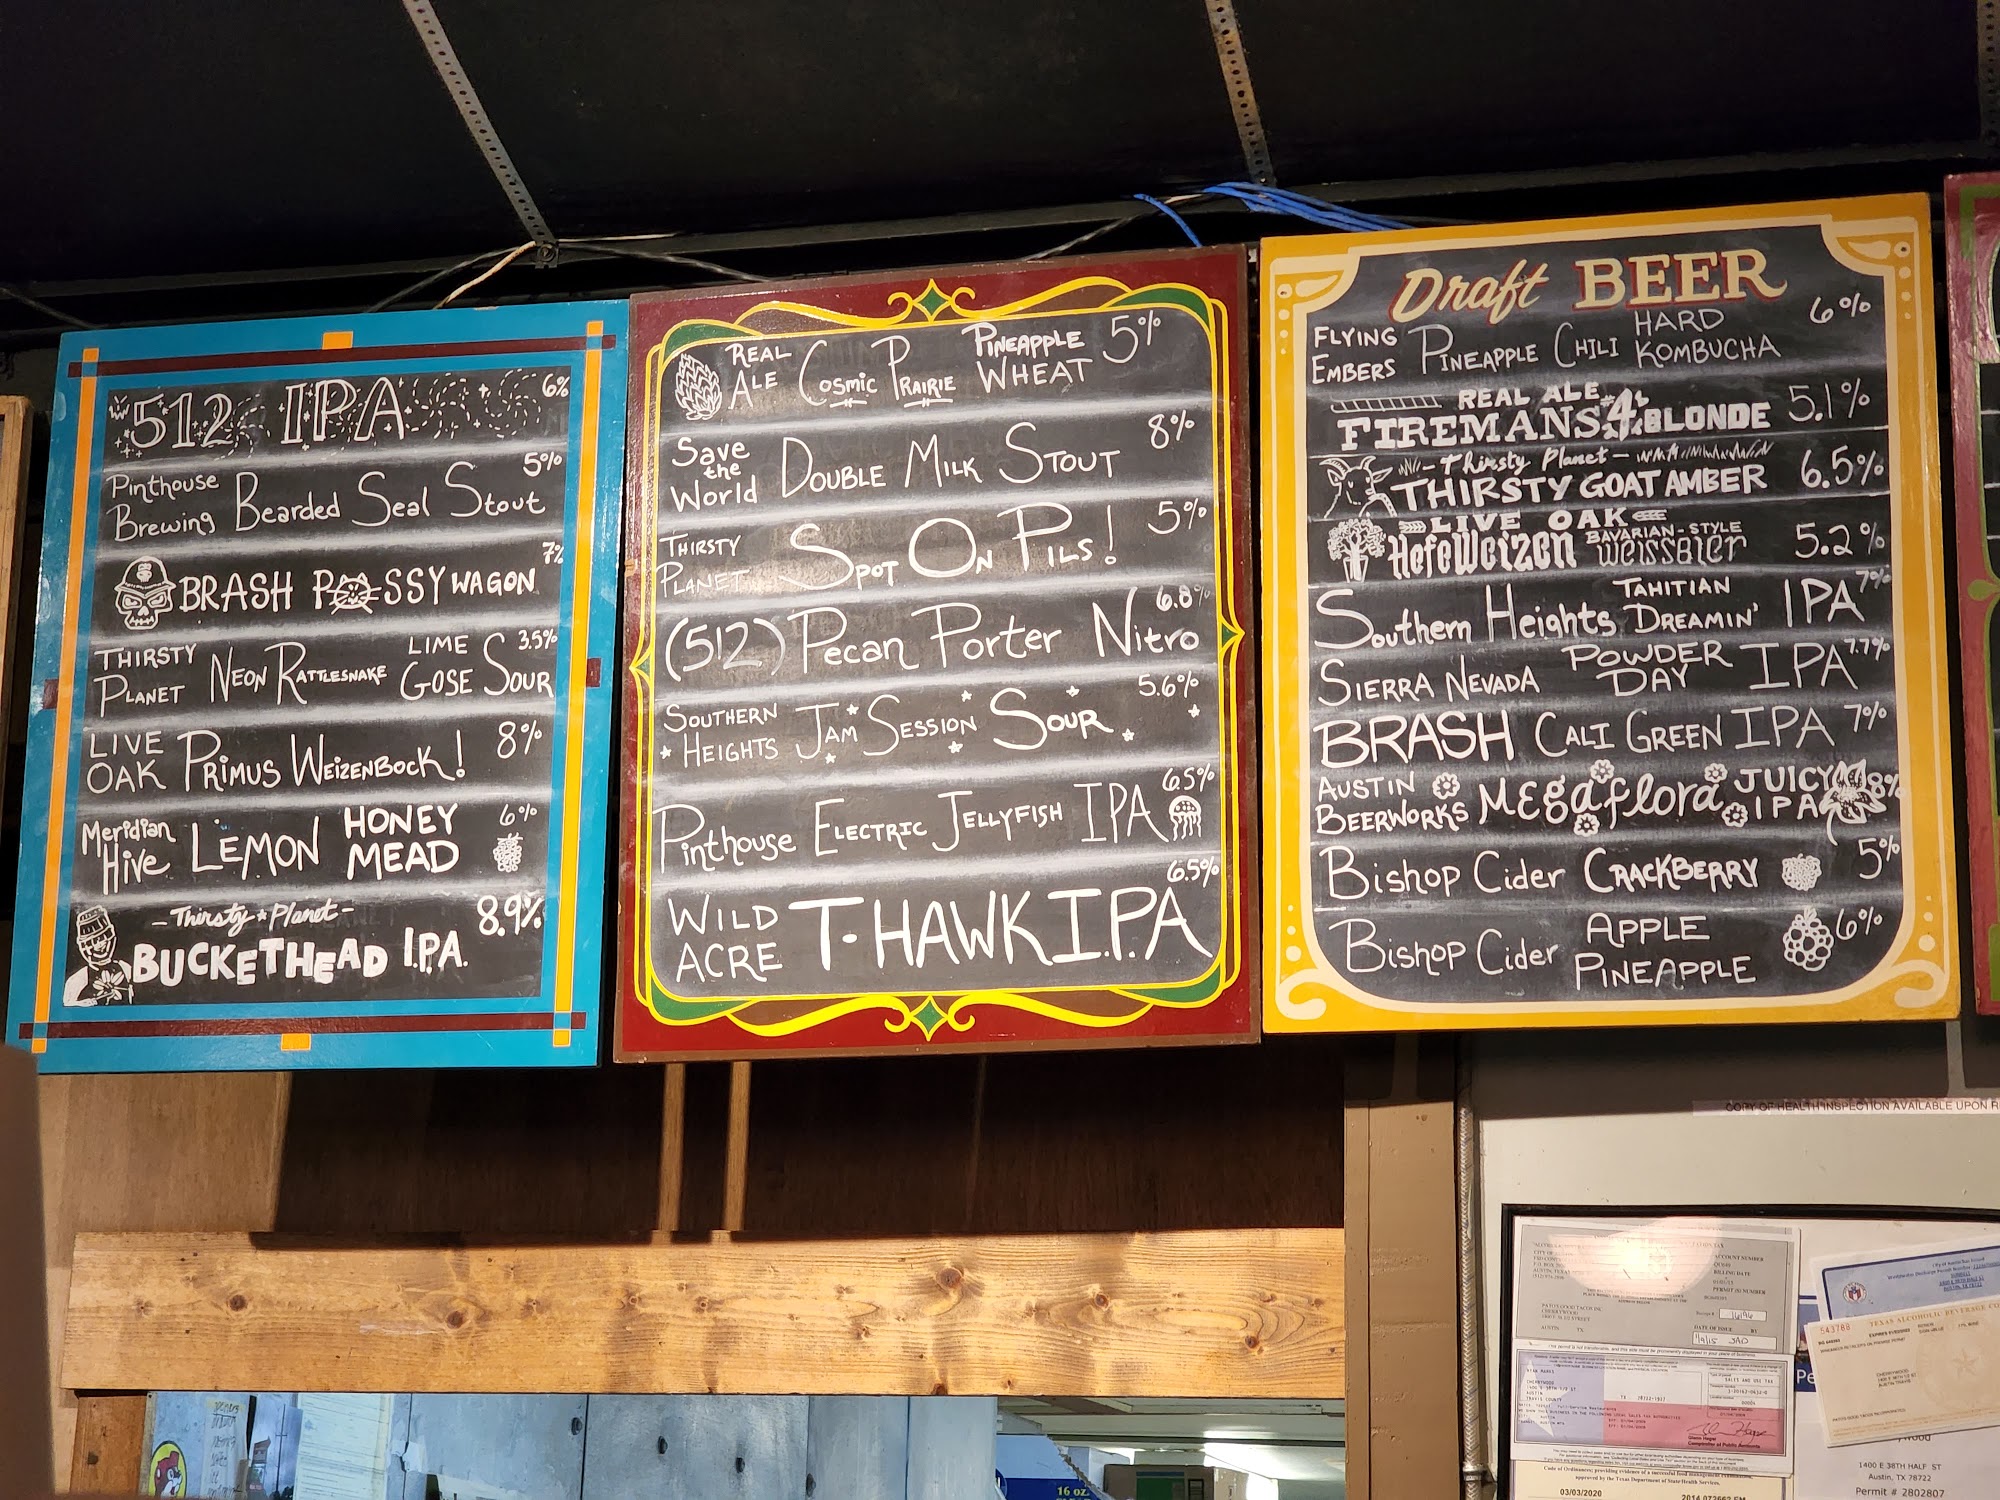 512 IPA 6%
Pinthouse Brewing Bearded Seal Stout 5%
BRASH P SSY WAGON 7%
THIRSTY PLANET NEON RATTLESNAKE LIME GOSE SOUR 3.5%
LIVE OAK PRIMUS WEIZENBOCK! 8%
Meridian Hive LEMON HONEY MEAD 6%
-Thirsty Planet-
BUCKETHEAD I.P.A. 8.9%
REAL ALE COSMIC PRAIRIE PINEAPPLE WHEAT 5%
Save the World DOUBLE MILK STOUT 8%
THIRSTY PLANET SPOT ON PILS! 5%
(512) Pecan Porter Nitro 6.8%
SOUTHERN HEIGHTS JAM SESSION SOUR 5.6%
Pinthouse ELECTRIC JELLYFISH IPA 6.5%
WILD ACRE T-HAWK I.P.A 6.5%
Draft BEER
FLYING EMBERS PINEAPPLE CHILI HARD KOMBUCHA 6%
REAL ALE
FIREMANS #4 BLONDE 5.1%
-Thirsty Planet-
THIRSTY GOAT AMBER 6.5%
LIVE OAK
HefeWeizen BAVARIAN-STYLE weissbier 5.2%
Southern Heights TAHITIAN DREAMIN' IPA 7%
SIERRA NEVADA POWDER DAY IPA 7.7%
BRASH CALI GREEN IPA 7%
AUSTIN BEERWORKS MEgaflora JUICY IPA 8%
Bishop Cider CRACKBERRY 5%
Bishop Cider APPLE PINEAPPLE 6%
COPY OF HEALTH INSPECTION AVAILABLE UPON
ACCOUNT NUMBER
BILLING DATE
PERMIT NUMBER
DATE OF ISSUE
SALES AND USE TAX
TEXAS ALCOHOLIC BEVERAGE
543788
Glenn Hegar
Comptroller of Public Accounts
03/03/2020
1400 E 38TH HALF ST
Austin, TX 78722
Permit # 2802807
16 oz.